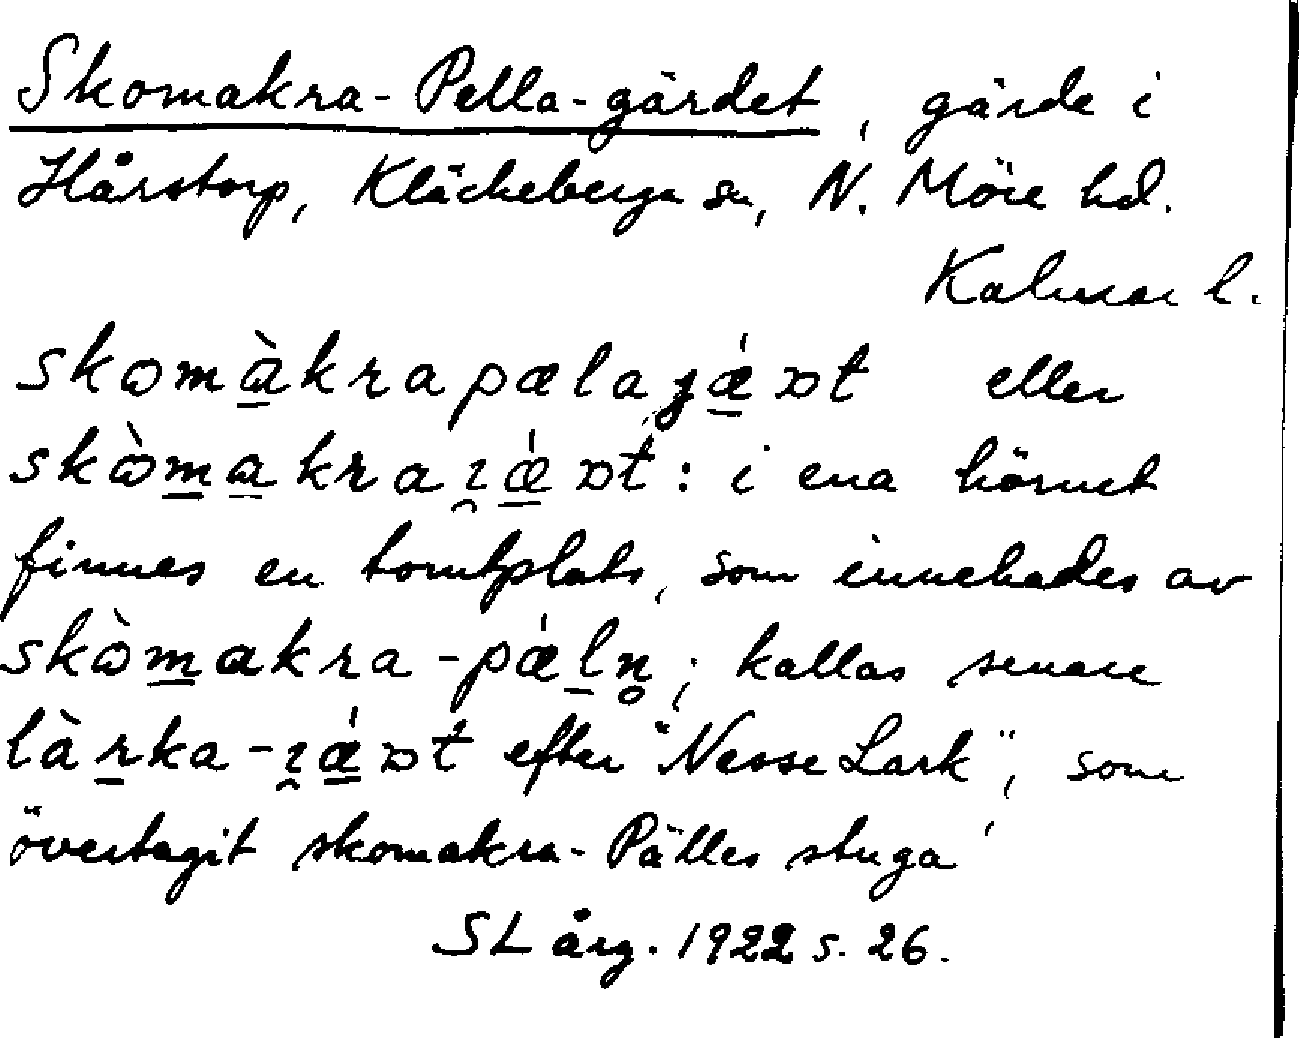 Skomakra-Pella-gärdet, gärde i
Hårstorp, Kläckeberga sn, N. Möre hd.
Kalmar l.
skomàkrapælajǽɒt eller
skòmakraɪ̯ǽɒt: i ena hörnet
finnes en tomtplats, som innehades av
skòmakra-pǽln̥; kallas senare
làrka-ɪ̯ǽɒt efter "Nesse Lark", som
övertagit skomakra-Pälles stuga'
SL årg. 1922 s. 26.